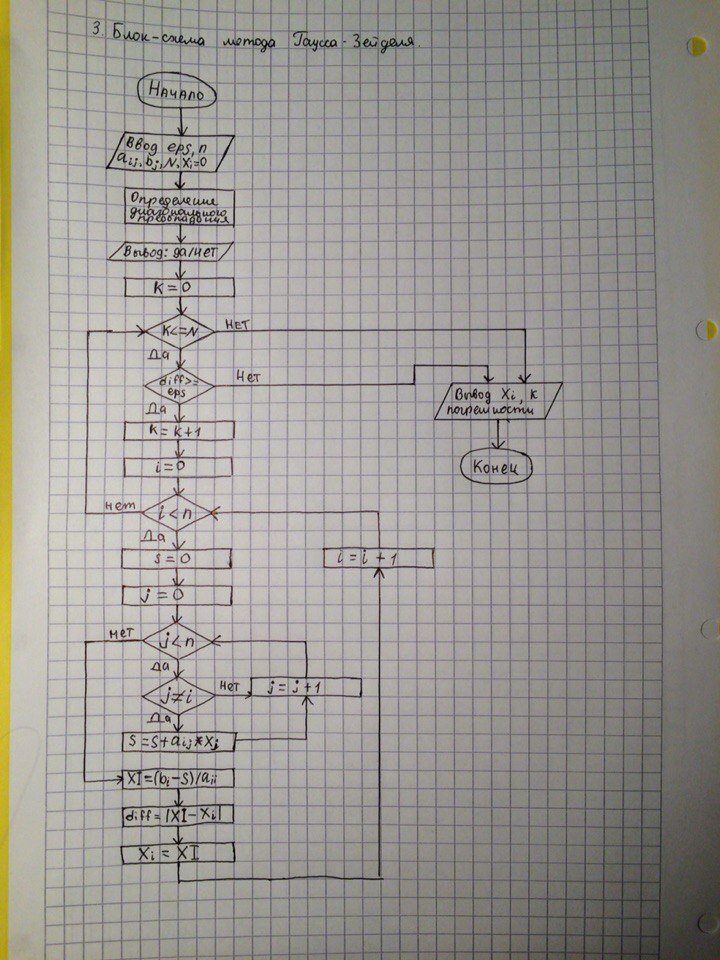 3. Блок-схема метода Гаусса-Зейделя.
Начало
Ввод eps, n
aij, bj, N, Xi=0
Определение
диагонального
преобладания
Вывод: да/нет
K=0
K<=N
нет
Да
diff>=
eps
Нет
Да
Вывод Xi, k
погрешности
Конец
k=k+1
i=0
i<n
нет
Да
s=0
i=i+1
j=0
j<n
нет
Да
j≠i
Нет
j=j+1
Да
s=s+aij*xj
XI=(bi-s)/aii
diff=|XI-Xi|
Xi=XI